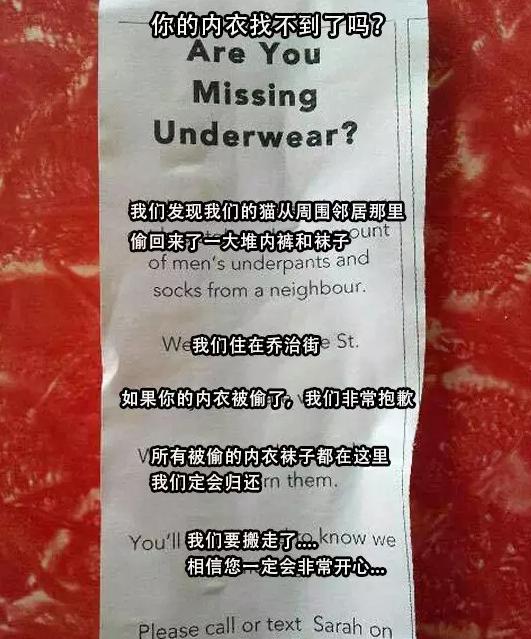 你的内衣找不到了吗？
Are You
Missing
Underwear?
我们发现我们的猫从周围邻居那里
偷回来了一大堆内裤和袜子
of men's underpants and
socks from a neighbour.
We
我们住在乔治街
St.
如果你的内衣被偷了，我们非常抱歉
所有被偷的内衣袜子都在这里
我们定会归还
them.
You'll
我们要搬走了....
know we
相信您一定会非常开心...
Please call or text Sarah on